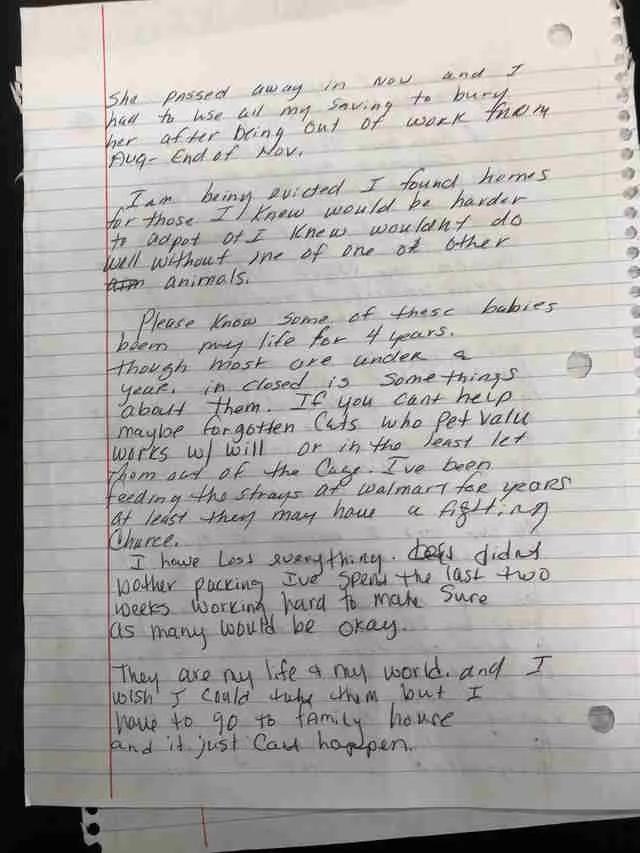 She passed away in Nov and I
had to use all my saving to bury
her after being out of work from
Aug- End of Nov.
I am being evicted I found homes
for those I knew would be harder
to adpot or I knew wouldnt do
well without one of one of other
animals.
Please know some of these babies
been my life for 4 years.
though most are under a
year. in closed is some things
about them. If you cant help
maybe forgotten Cats who Pet Valu
works w/ will or in the least let
them out of the Cage. I've been
feeding the strays at walmart for years
at least they may have a fighting
Chance.
I have loss everything. didnt
bother packing Ive spend the last two
weeks working hard to make sure
as many would be okay.
They are my life & my world. and I
wish I could take them but I
have to go to family house
and it just cant happen.